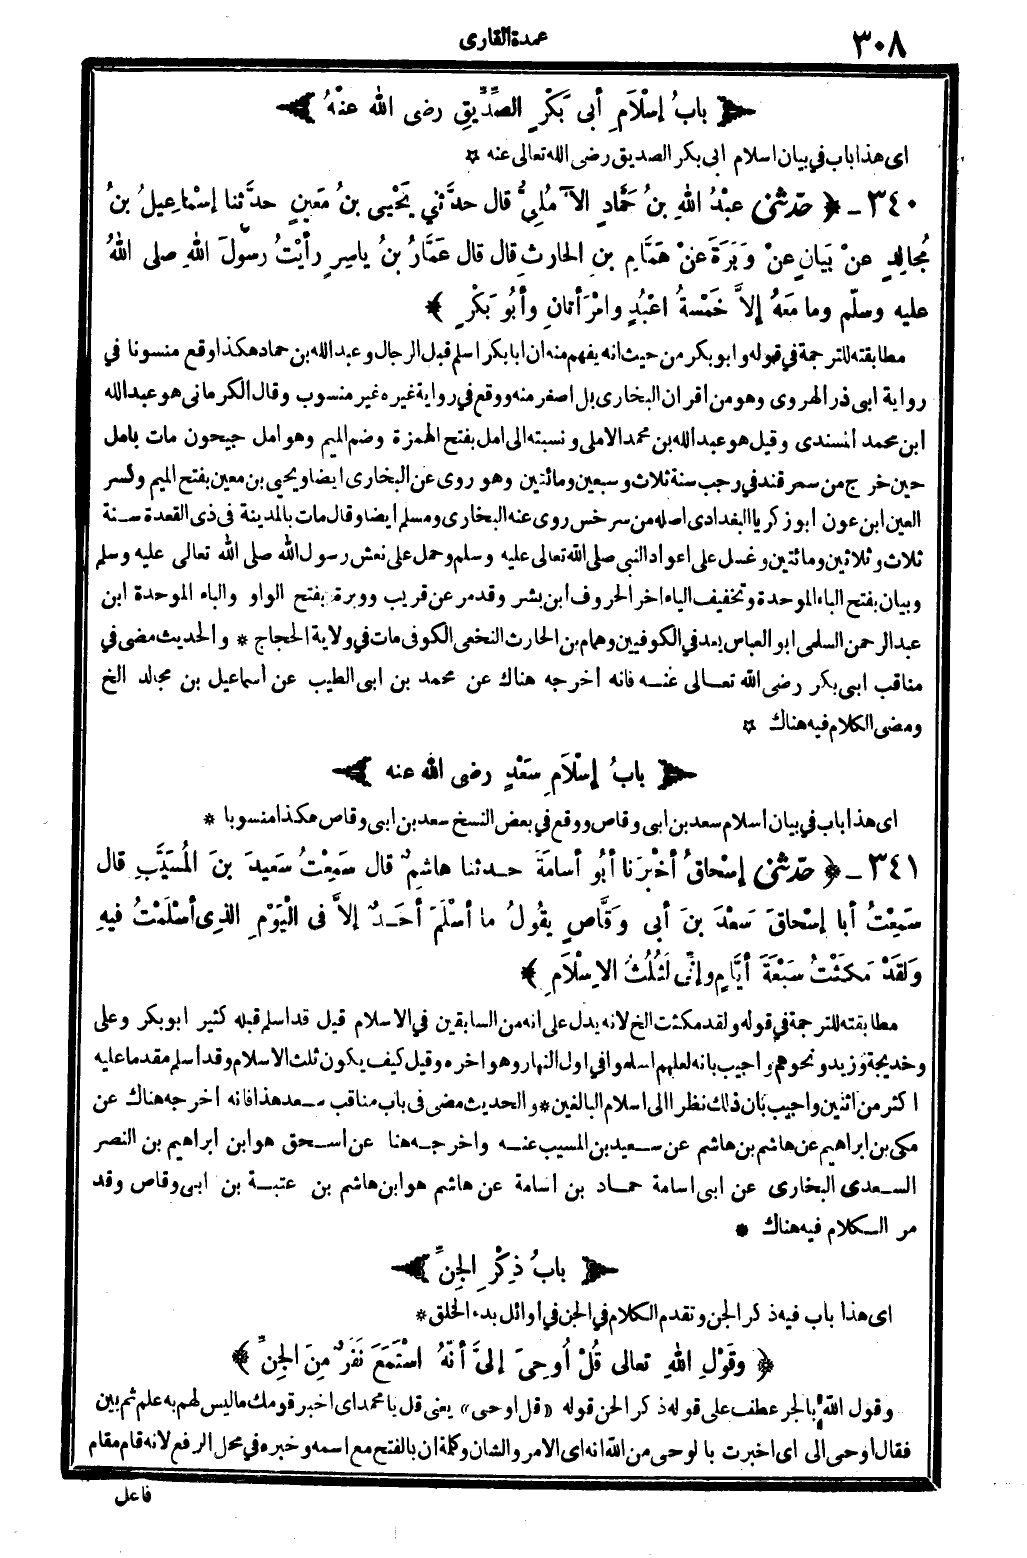 ٣٠٨
عمدة القارى
بابُ إسْلاَمِ أبى بَكْرٍ الصِّدِّيقِ رضى الله عنْهُ
اى هذا باب في بيان اسلام ابى بكر الصديق رضى الله تعالى عنه
٣٤٠ ـ ﴿ حدّثنى عبْدُ اللهِ بنُ حَمَّادٍ الآمُلِيُّ قال حدَّثني يَحْيى بنُ مَعِينٍ حدَّثنا إسْماعِيلُ بنُ
مُجالِدٍ عنْ بَيَانٍ عنْ وَبَرَةَ عنْ هَمَّامِ بنِ الحارِثِ قال قال عَمَّارُ بنُ ياسِرٍ رأيْتُ رسولَ اللهِ صلى اللهُ
عليه وسلّم وما معَهُ إلاَّ خَمْسةُ اعْبُدٍ وامْرَأتانِ وأبُو بَكْرٍ ﴾
مطابقته للترجمة في قوله وابو بكر من حيث انه يفهم منه ان ابا بكر اسلم قبل الرجال وعبدالله بن حماد هكذا وقع منسوبا في
رواية ابى ذر الهروى وهو من اقران البخارى بل اصغر منه ووقع في رواية غيره غير منسوب وقال الكرمانى هو عبدالله
ابن محمد المسندى وقيل هو عبدالله بن محمد الاملى ونسبته الى امل بفتح الهمزة وضم الميم وهو امل جيحون مات بامل
حين خرج من سمرقند في رجب سنة ثلاث وسبعين ومائتين وهو روى عن البخارى ايضا ويحيى بن معين بفتح الميم وكسر
العين ابن عون ابو زكريا البغدادى اصله من سرخس روى عنه البخارى ومسلم ايضا وقال مات بالمدينة فى ذى القعدة سنة
ثلاث وثلاثين ومائتين وغسل على اعواد النبى صلى الله تعالى عليه وسلم وحمل على نعش رسول الله صلى الله تعالى عليه وسلم
وبيان بفتح الباء الموحدة وتخفيف الياء اخر الحروف ابن بشر وقد مر عن قريب ووبرة بفتح الواو والباء الموحدة ابن
عبدالرحمن السلمى ابو العباس يعد في الكوفيين وهمام بن الحارث النخعى الكوفى مات في ولاية الحجاج * والحديث مضى في
مناقب ابى بكر رضى الله تعالى عنه فانه أخرجه هناك عن محمد بن ابى الطيب عن أسماعيل بن مجالد الخ
ومضى الكلام فيه هناك
بابُ إسْلاَمِ سَعْدٍ رضى الله عنه
اى هذا باب في بيان أسلام سعد بن ابى وقاص ووقع في بعض النسخ سعد بن ابى وقاص هكذا منسوبا *
٣٤١ ـ ﴿ حدّثنى إسْحاقُ أخْبَرَنا أبُو أسامَةَ حدثنا هاشِمٌ قال سَمِعْتُ سَعيدَ بنَ المُسَيَّبِ قال
سَمِعْتُ أبا إسْحاقَ سَعْدَ بنَ أبى وَقَّاصٍ يقُولُ ما أسْلَمَ أحَدٌ إلاَّ فى الْيَوْمِ الذِى أسْلَمْتُ فيهِ
ولَقَدْ مَكَثْتُ سَبْعَةَ أيَّامٍ وإنِّى لَثُلُثُ الاِسْلاَمِ ﴾
مطابقته للترجمة في قوله ولقد مكثت الخ لانه يدل على انه من السابقين في الاسلام قيل قد اسلم قبله كثير ابو بكر وعلى
وخديجة وزيد ونحوهم واجيب بانه لعلهم اسلموا في اول النهار وهو اخره وقيل كيف يكون ثلث الاسلام وقد اسلم مقدما عليه
اكثر من اثنين واجيب بأن ذلك نظرا الى اسلام البالغين * والحديث مضى فى باب مناقب سعد هذا فانه اخرجه هناك عن
مكى بن ابراهيم عن هاشم بن هاشم عن سعيد بن المسيب عنه واخرجه هنا عن اسحق هو ابن ابراهيم بن النصر
السعدى البخارى عن ابى اسامة حماد بن أسامة عن هاشم هو ابن هاشم بن عتبة بن ابى وقاص وقد
مر الكلام فيه هناك *
بابُ ذِكْرِ الجِنِّ
اى هذا باب فيه ذكر الجن وتقدم الكلام في الجن في أوائل بدء الخلق *
﴿ وقَوْلِ اللهِ تعالى قُلْ أُوحِىَ إلىَّ أنّهُ اسْتَمَعَ نَفَرٌ مِنَ الجِنِّ ﴾
وقول الله بالجر عطف على قوله ذكر الجن قوله «قل اوحى» يعنى قل يا محمد اى اخبر قومك ما ليس لهم به علم ثم بين
فقال اوحى الى اى اخبرت بالوحى من الله انه اى الامر والشان وكلة ان بالفتح مع اسمه وخبره في محل الرفع لانه قام مقام
فاعل